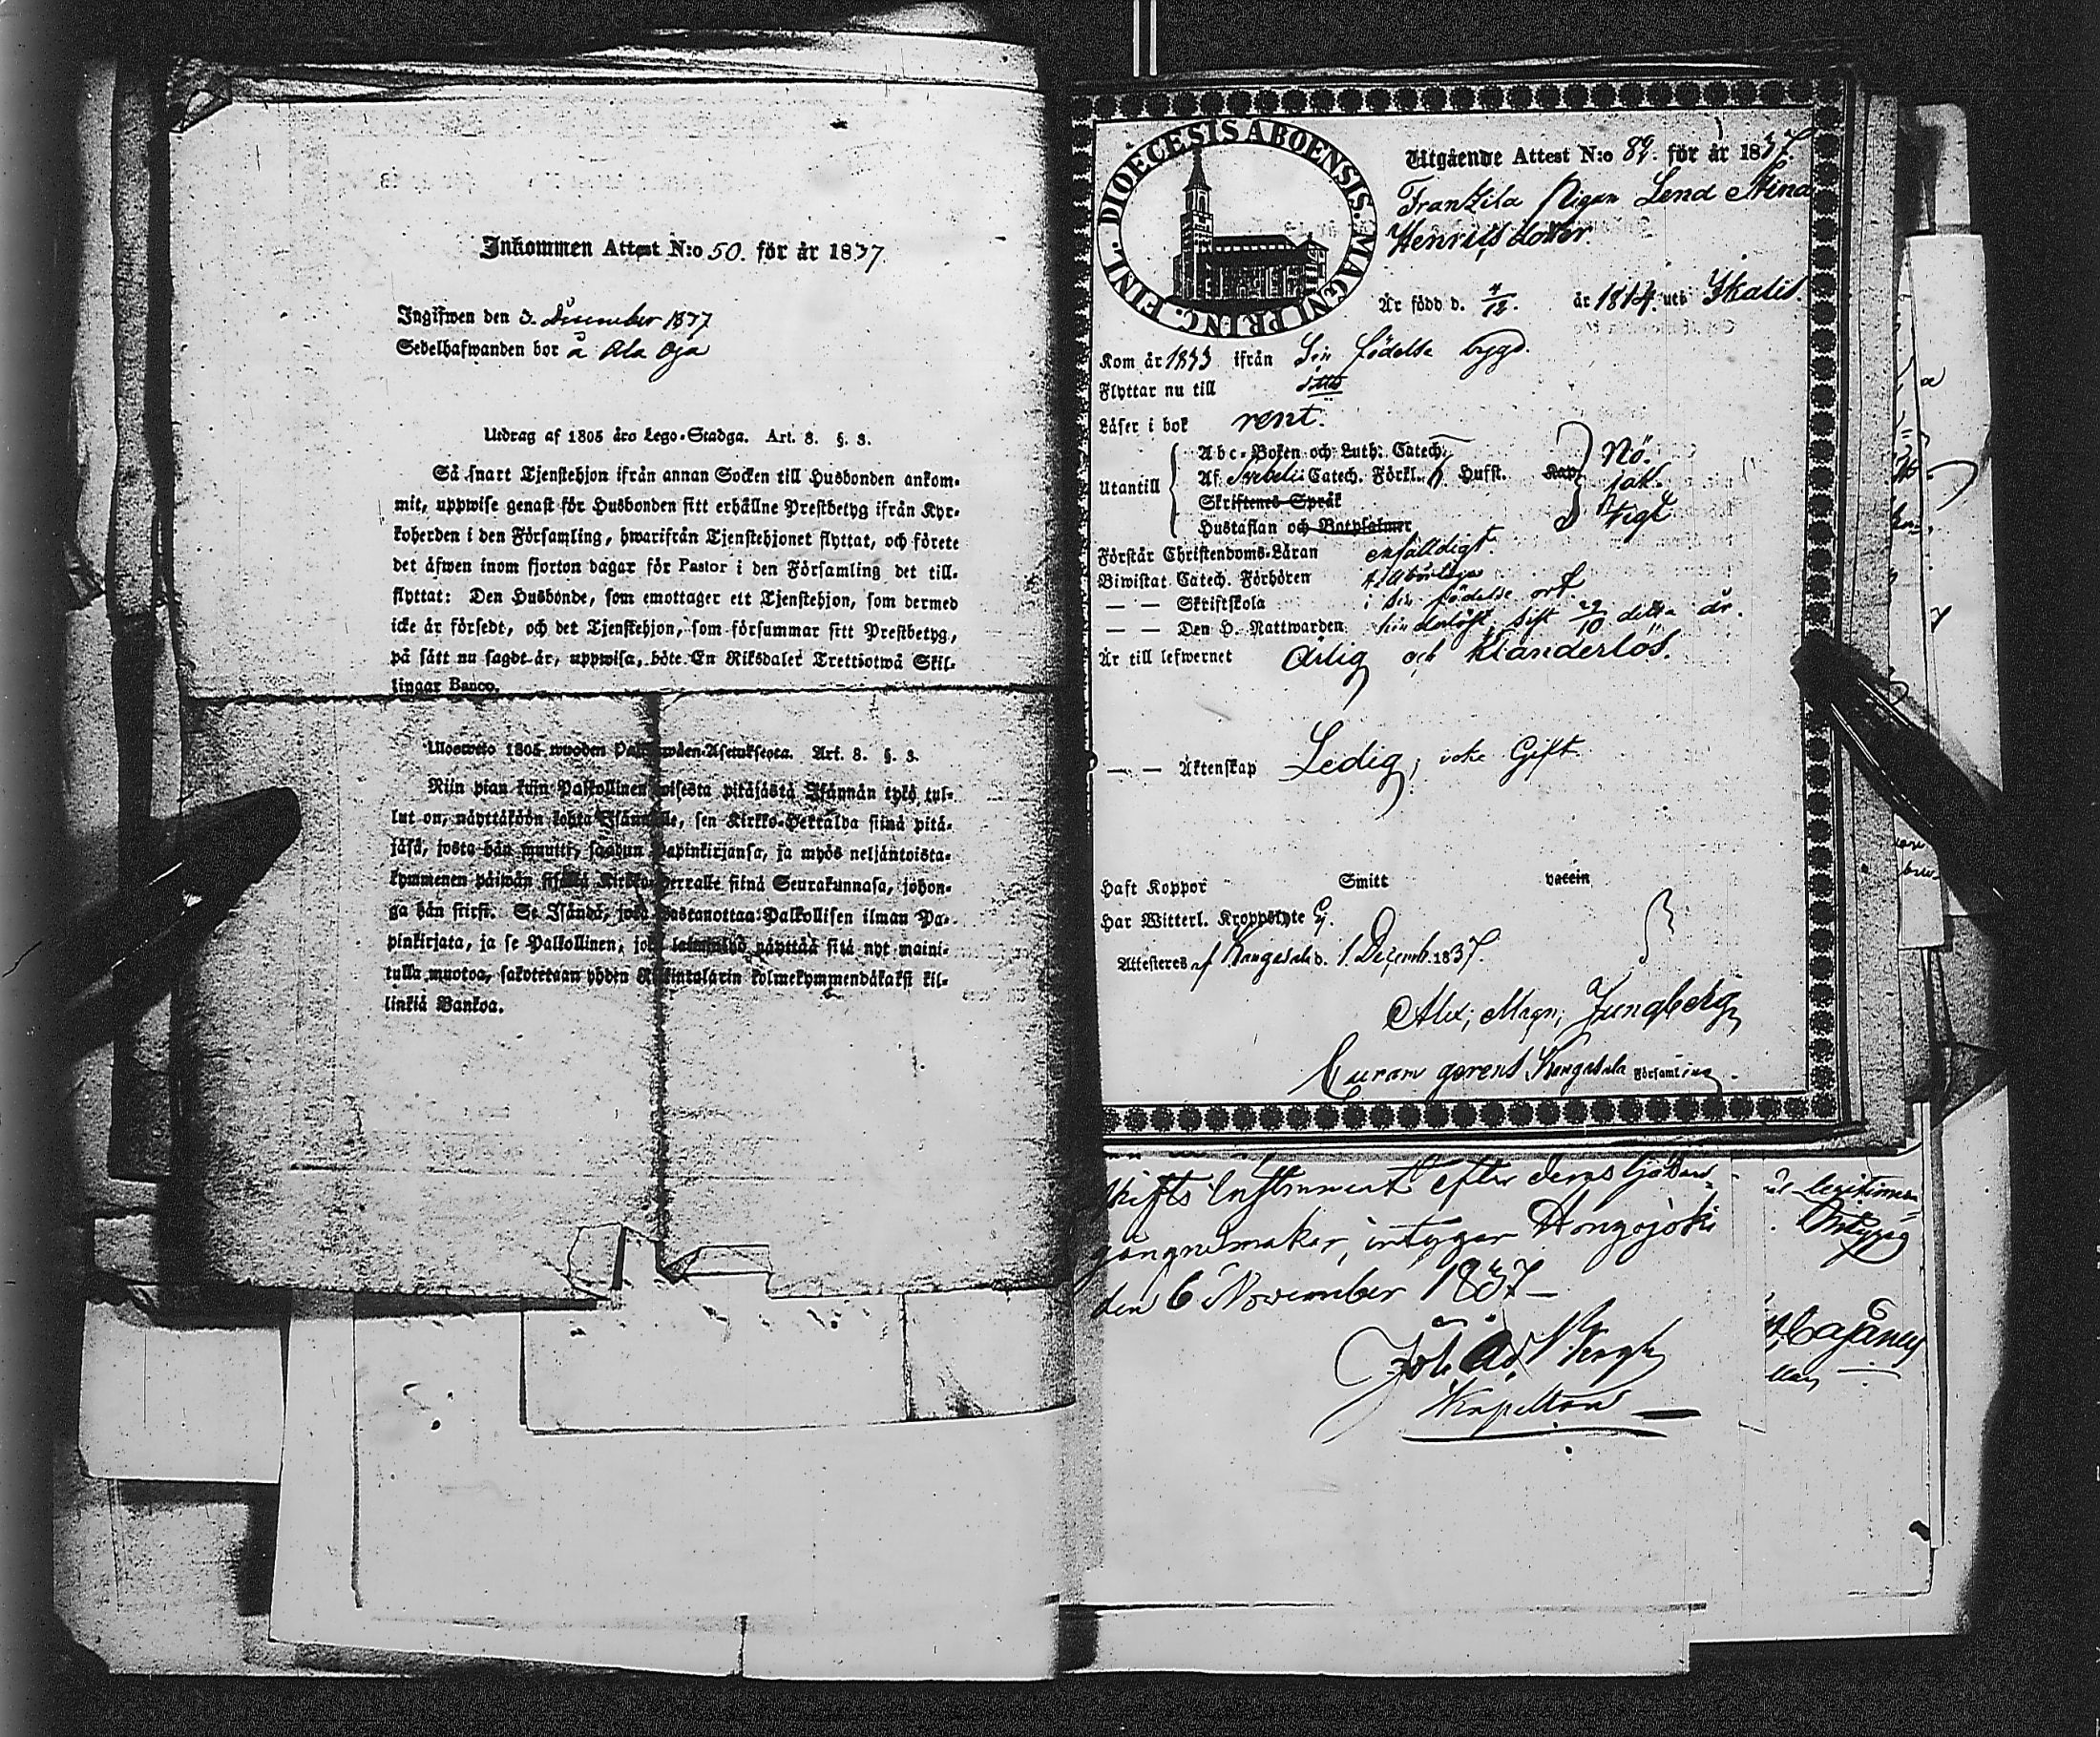 Inkommen Attest N:o 50. för år 1837
Ingifwen den 3. December 1837
Sedelhafwanden bor å Ala Oja
Utdrag af 1805 års Lego-Stadga. Art. 8. §. 3.
Så snart Tjenstehjon ifrån annan Socken till Husbonden ankom-
mit, uppwise genast för Husbonden sitt erhållne Prestbetyg ifrån Kyr-
koherden i den Församling, hwarifrån Tjenstehjonet flyttat, och förete
det äfwen inom fjorton dagar för Pastor i den Församling det till-
flyttat: Den Husbonde, som emottager ett Tjenstehjon, som dermed
icke är försedt, och det Tjenstehjon, som försummar sitt Prestbetyg,
på sätt nu sagdt är, uppwisa, böte En Riksdaler Trettiotwå Skil-
lingar Banco.
Ulosweto 1805 wuoden Asetuksesta. Art. 8. §. 3.
Niin pian kuin Palkollinen toisesta pitäjästä Isännän tykö tul-
lut on, näyttäköön kohta Isännälle, sen Kirkko-Herralda siinä pitä-
jäsä, josta hän muutti, saadun Papinkirjansa, ja myös neljäntoista-
kymmenen päiwän sisällä Kirkko-Herralle siinä Seurakunnasa, johon-
ga hän siirsi. Se Isändä, joka wastanottaa Palkollisen ilman Pa-
pinkirjata, ja se Palkollinen, joka laiminlyö näyttää sitä nyt maini-
tulla muotoa, sakotetaan yhden Riksintalarin kolmekymmendäkaksi kil-
linkiä Bankoa.
DIOECESIS ABOENSIS. MAGNI PRINC. FINL.
Utgående Attest N:o 89. för år 1837.
Frantzila Pigan Lena Stina
Henriksdotter.
Är född d. 4/12. år 1814 uti Ikalis.
Kom år 1833 ifrån Sin födelse bygd.
Flyttar nu till ditto
Läser i bok rent.
Utantill
Abc-Boken och Luth. Catech.
Af Svebelii Catech. Förkl. Hufst. Kap.
Skriftenes Språk
Hustaflan och Botpsalmer
Nö.
jak.
tigt
Förstår Christendoms-Läran enfälldigt.
Biwistat Catech. Förhören tillbörligen
— — Skriftskola i sin födelse ort.
— — Den H. Nattwarden hinderlöst, sist 29/10 detta år.
Är till lefwernet Ärlig och Klanderlös.
— — Äktenskap Ledig, icke Gift.
Haft Koppor Smitt vaccin
Har Witterl. Kroppslyte Ej.
Attesteres af Kangasala d. 1. Decemb. 1837.
Alex; Magn; Jungberg
Curam gerens Kangasala Församling.
skifts instrument efter dess
gångne maka, intygar Hongojoki
den 6 November 1837 —
Kapellan —